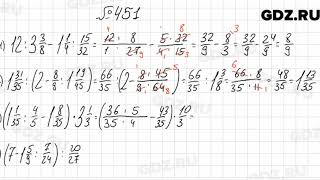 №451
GDZ.RU
12 : 3 3/8 - 1 1/4 · 15/32 = 12 · 8 / 1 · 27 - 5 · 32 / 4 · 15 = 32/9 - 8/3 = 32/9 - 24/9 = 8/9
1 31/35 · (2 - 8/9 · 1 13/45) = 66/35 · (2 - 8 · 45 5 / 9 · 64 8) = 66 · 8 / 35 · 11 = 48/35 = 1 13/35
(1 1/35 : 4/5 - 1 8/35) · 3 1/3 = (36 · 5 / 35 · 4 - 43/35) · 10/3 =
(7 - 1 5/9 : 7/24) : 20/27